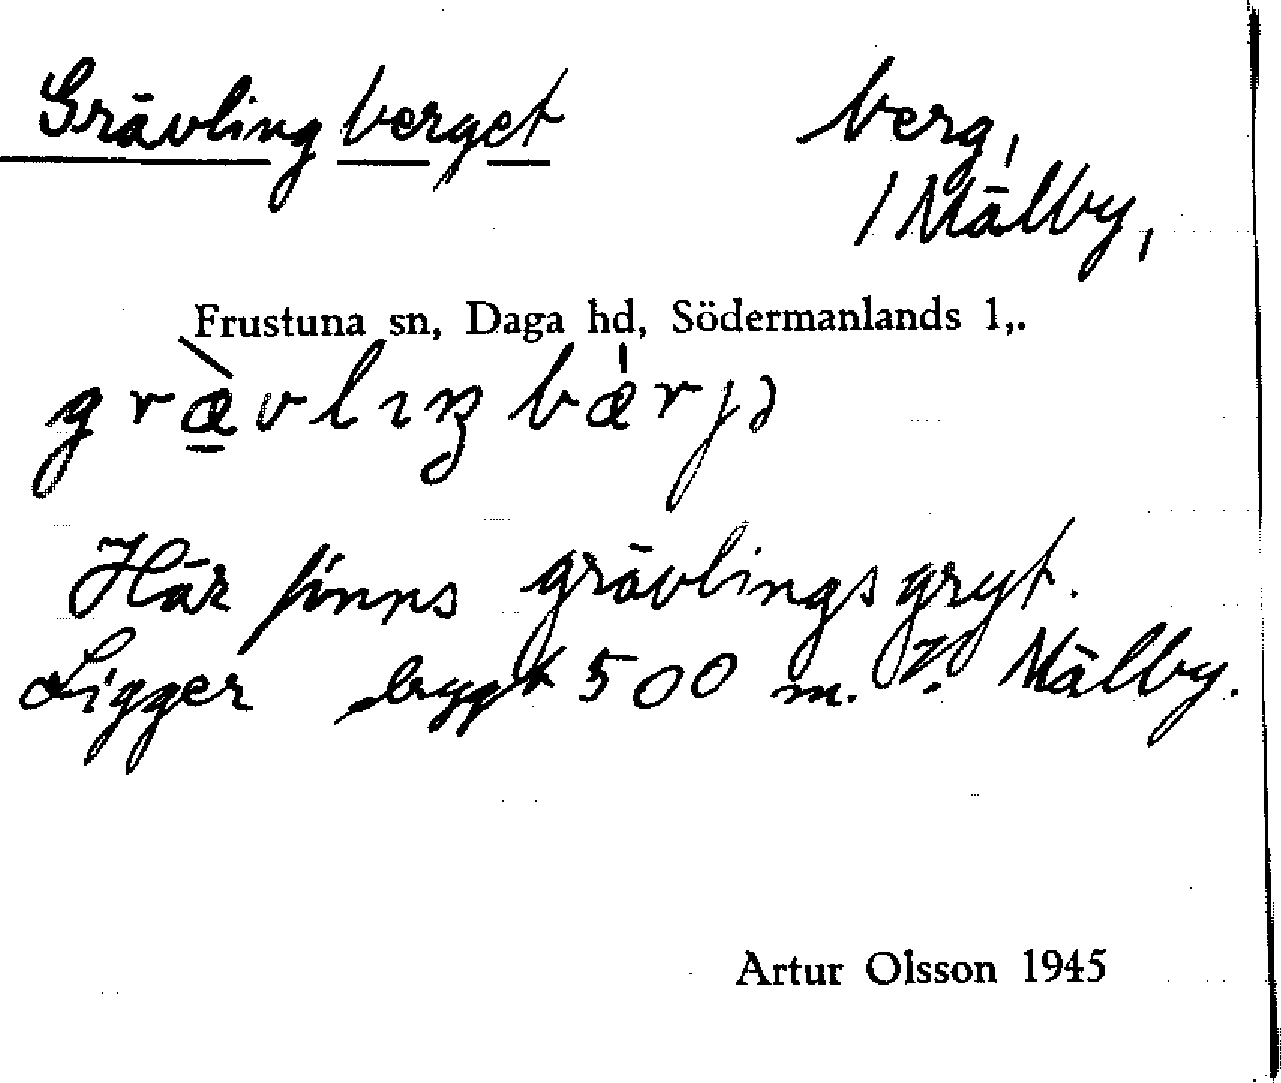 Grävlingberget berg,
/ Mälby,
Frustuna sn, Daga hd, Södermanlands l,.
græ̀vlıŋbæ̍rjə
Här finns grävlingsgryt.
Ligger bygt 500 m. V. Mälby.
Artur Olsson 1945